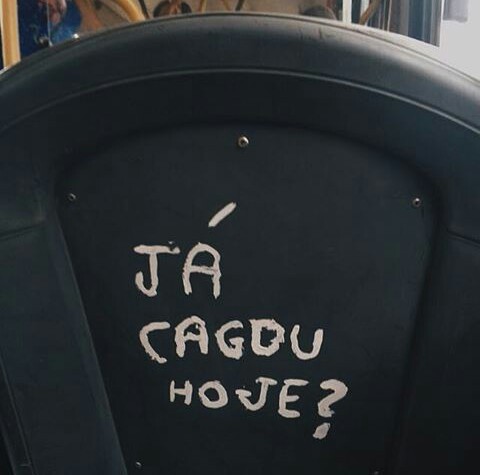 JÁ
CAGOU
HOJE?